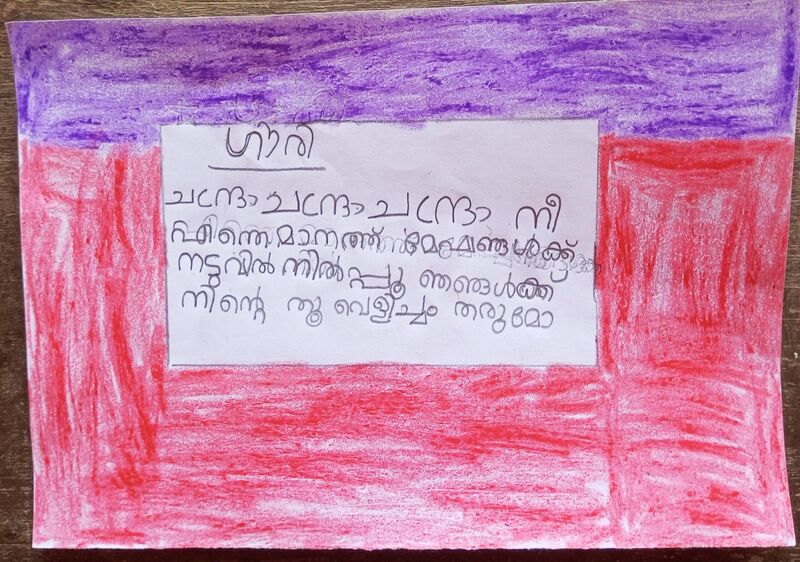 ഗൗരി
ചന്ദ്രാ ചന്ദ്രാ ചന്ദ്രാ നീ
എന്തെ മാനത്ത് മേഘങ്ങൾക്ക്
നടുവിൽ നിൽപ്പൂ ഞങ്ങൾക്ക്
നിന്റെ തൂ വെളിച്ചം തരുമോ